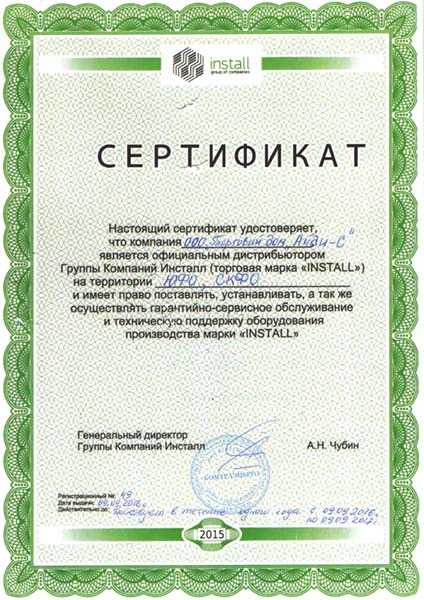 install
group of companies
СЕРТИФИКАТ
Настоящий сертификат удостоверяет,
что компания ООО „Торговый дом „Анди-С"
является официальным дистрибьютором
Группы Компаний Инсталл (торговая марка «INSTALL»)
на территории ЮФО, СКФО
и имеет право поставлять, устанавливать, а так же
осуществлять гарантийно-сервисное обслуживание
и техническую поддержку оборудования
производства марки «INSTALL»
Генеральный директор
Группы Компаний Инсталл
А.Н. Чубин
КОМТЕЛЭНЕРГО
Регистрационный №: 49
Дата выдачи: 09.09.2016г.
Действительно до: Действует в течение одного года с 09.09.2016г.
по 09.09.2017г.
2015